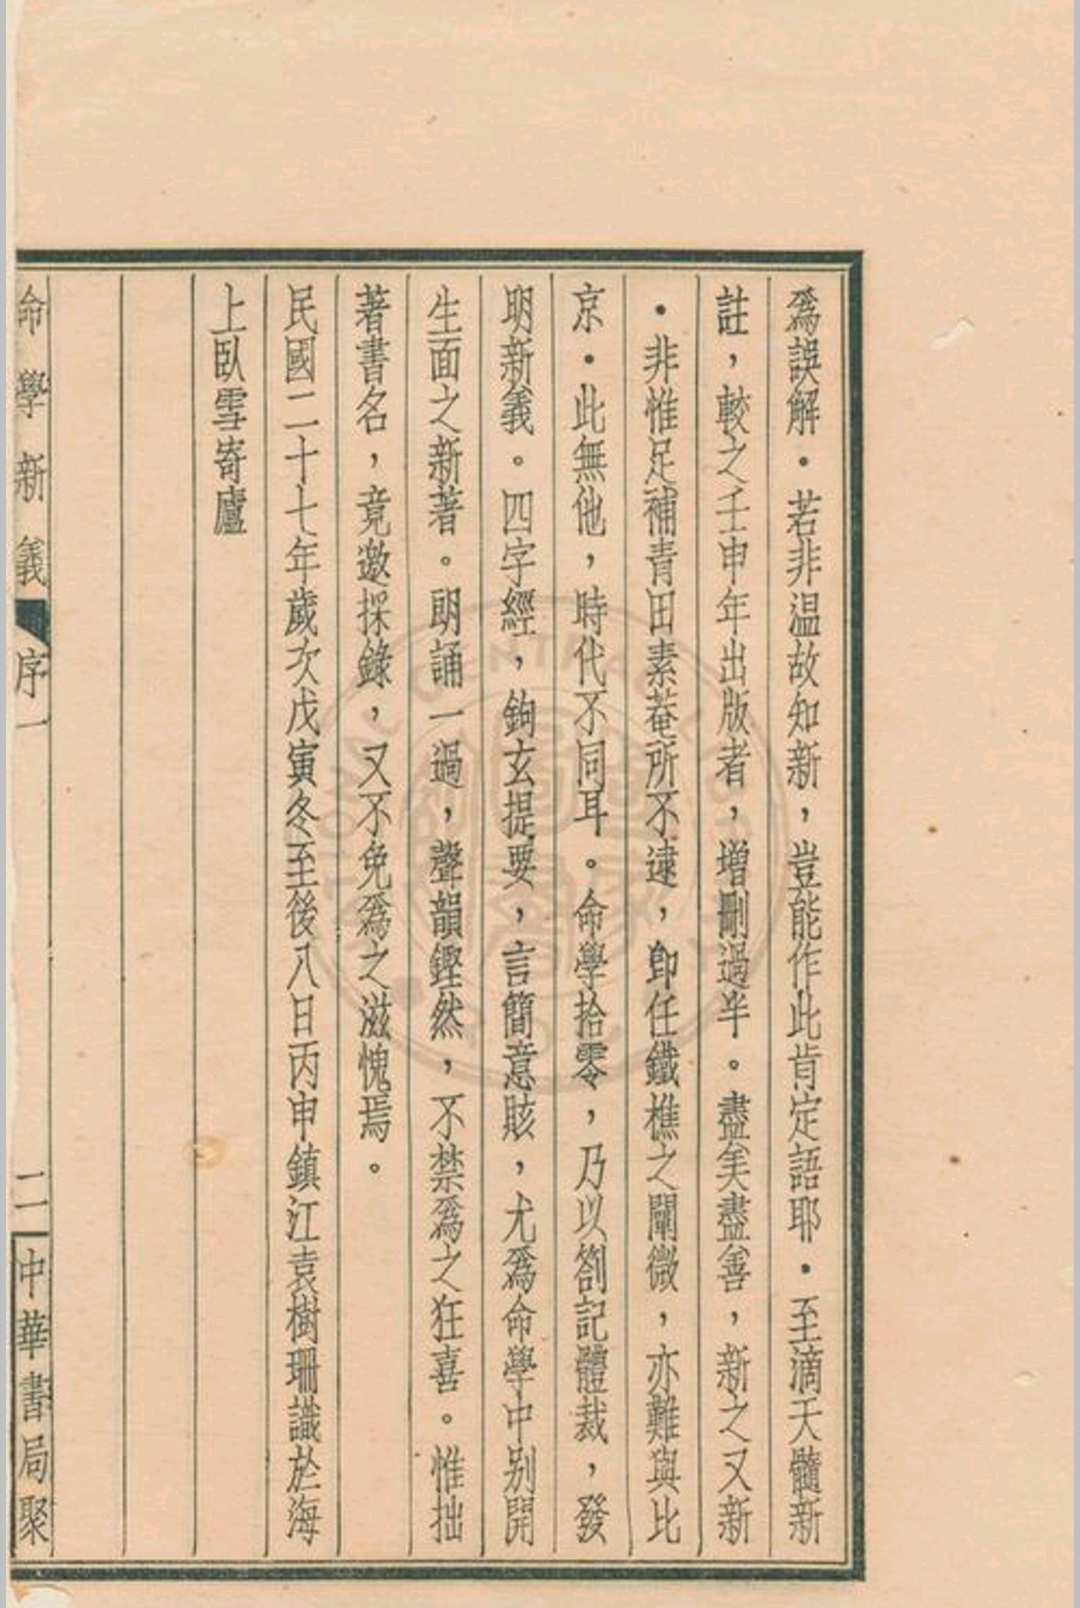 爲誤解・若非温故知新，豈能作此肯定語耶・至滴天髓新
註，較之壬申年出版者，增刪過半。盡美盡善，新之又新
・非惟足補青田素菴所不逮，卽任鐵樵之闡微，亦難與比
京・此無他，時代不同耳。命學拾零，乃以劄記體裁，發
明新義。四字經，鉤玄提要，言簡意賅，尤爲命學中别開
生面之新著。朗誦一過，聲韻鏗然，不禁爲之狂喜。惟拙
著書名，竟邀採錄，又不免爲之滋愧焉。
民國二十七年歲次戊寅冬至後八日丙申鎮江袁樹珊識於海
上臥雪寄廬
命學新義 序一 二 中華書局聚